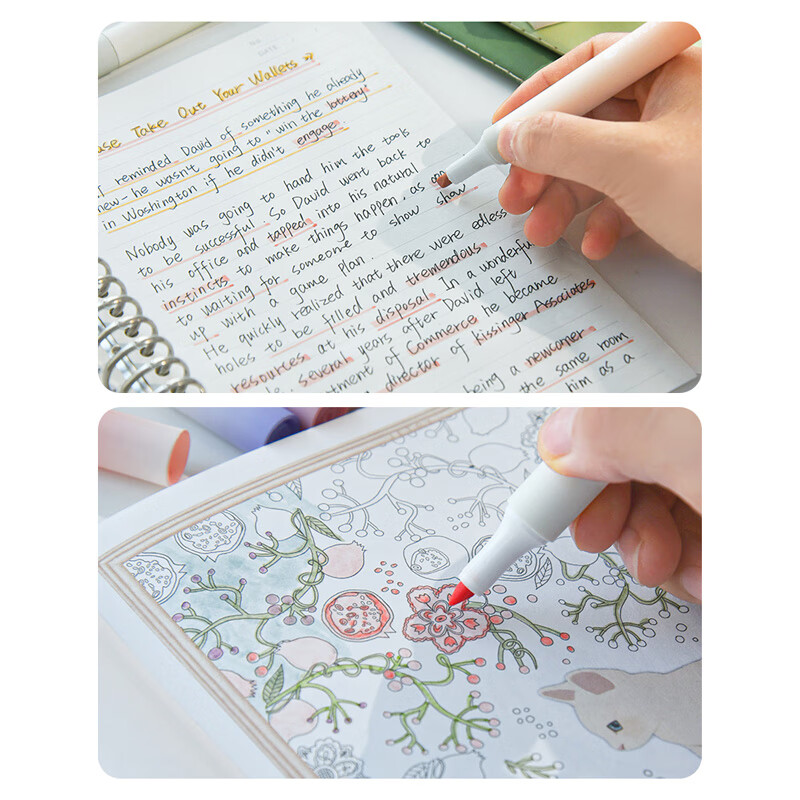 DATE
use Take Out Your Wallets
I reminded David of something he already
new - he wasn't going to " win the lottery"
in Washington if he didn't engage.
Nobody was going to hand him the tools
to be successful. So David went back to
his office and tapped into his natural
instincts to make things happen, as opp
to waiting for someone to show show
up with a game plan.
He quickly realized that there were edless
holes to be filled and tremendous
resources at his disposal. In a wonderfu
several years after David left
tment of Commerce he became
director of Kissinger Associates
being a newcomer
the same room
him as a